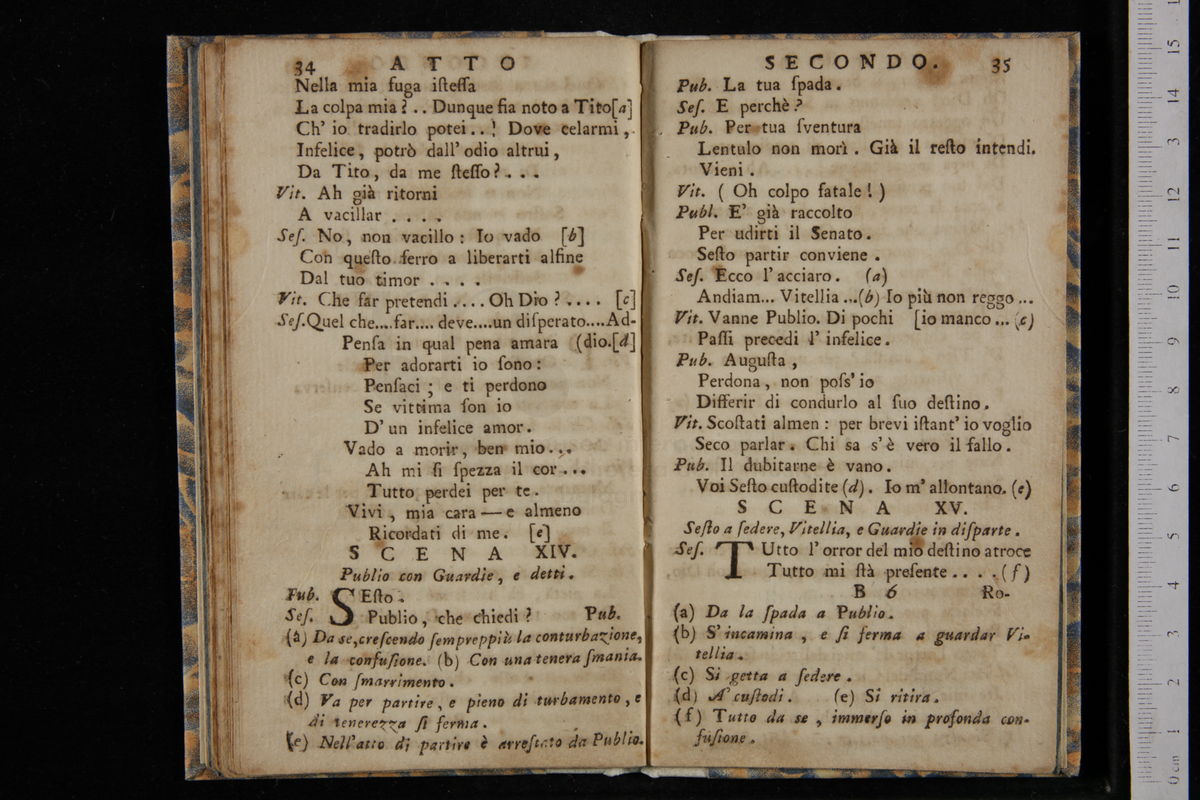 34 ATTO
Nella mia fuga iſteſſa
La colpa mia? .. Dunque fia noto a Tito[a]
Ch' io tradirlo potei..! Dove celarmi,
Infelice, potrò dall' odio altrui,
Da Tito, da me ſteſſo?...
Vit. Ah già ritorni
A vacillar ....
Seſ. No, non vacillo: Io vado [b]
Con queſto ferro a liberarti alfine
Dal tuo timor ....
Vit. Che far pretendi .... Oh Dio? .... [c]
Seſ.Quel che....far.... deve....un diſperato....Ad-
Penſa in qual pena amara (dio.[d]
Per adorarti io ſono:
Penſaci; e ti perdono
Se vittima ſon io
D' un infelice amor.
Vado a morir, ben mio...
Ah mi ſi ſpezza il cor...
Tutto perdei per te.
Vivi, mia cara — e almeno
Ricordati di me. [e]
SCENA XIV.
Publio con Guardie, e detti.
Pub. SEſto.
Seſ. Publio, che chiedi? Pub.
(a) Da se,creſcendo ſempreppiù la conturbazione,
e la confuſione. (b) Con una tenera ſmania.
(c) Con ſmarrimento.
(d) Va per partire, e pieno di turbamento, e
di tenerezza ſi ferma.
(e) Nell'atto di partire è arreſtato da Publio.
SECONDO. 35
Pub. La tua ſpada.
Seſ. E perchè?
Pub. Per tua ſventura
Lentulo non morì. Già il reſto intendi.
Vieni.
Vit. ( Oh colpo fatale! )
Publ. E' già raccolto
Per udirti il Senato.
Seſto partir conviene.
Seſ. Ecco l'acciaro. (a)
Andiam... Vitellia ...(b) Io più non reggo ...
Vit. Vanne Publio. Di pochi [io manco ... (c)
Paſſi precedi l' infelice.
Pub. Auguſta,
Perdona, non poſs' io
Differir di condurlo al ſuo deſtino.
Vit. Scoſtati almen: per brevi iſtant' io voglio
Seco parlar. Chi sa s' è vero il fallo.
Pub. Il dubitarne è vano.
Voi Seſto cuſtodite (d). Io m' allontano. (e)
SCENA XV.
Seſto a ſedere, Vitellia, e Guardie in diſparte.
Seſ. TUtto l' orror del mio deſtino atroce
Tutto mi ſtà preſente ....(f)
B 6 Ro-
(a) Da la ſpada a Publio.
(b) S' incamina, e ſi ferma a guardar Vi-
tellia.
(c) Si getta a ſedere.
(d) A' cuſtodi. (e) Si ritira.
(f) Tutto da se, immerſo in profonda con-
fuſione.
15
14
13
12
11
10
9
8
7
6
5
4
3
2
1
0 cm